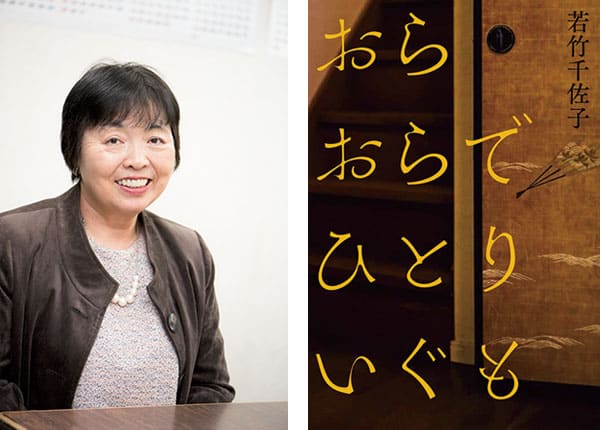 若竹千佐子
おらおらで
ひとりいぐも